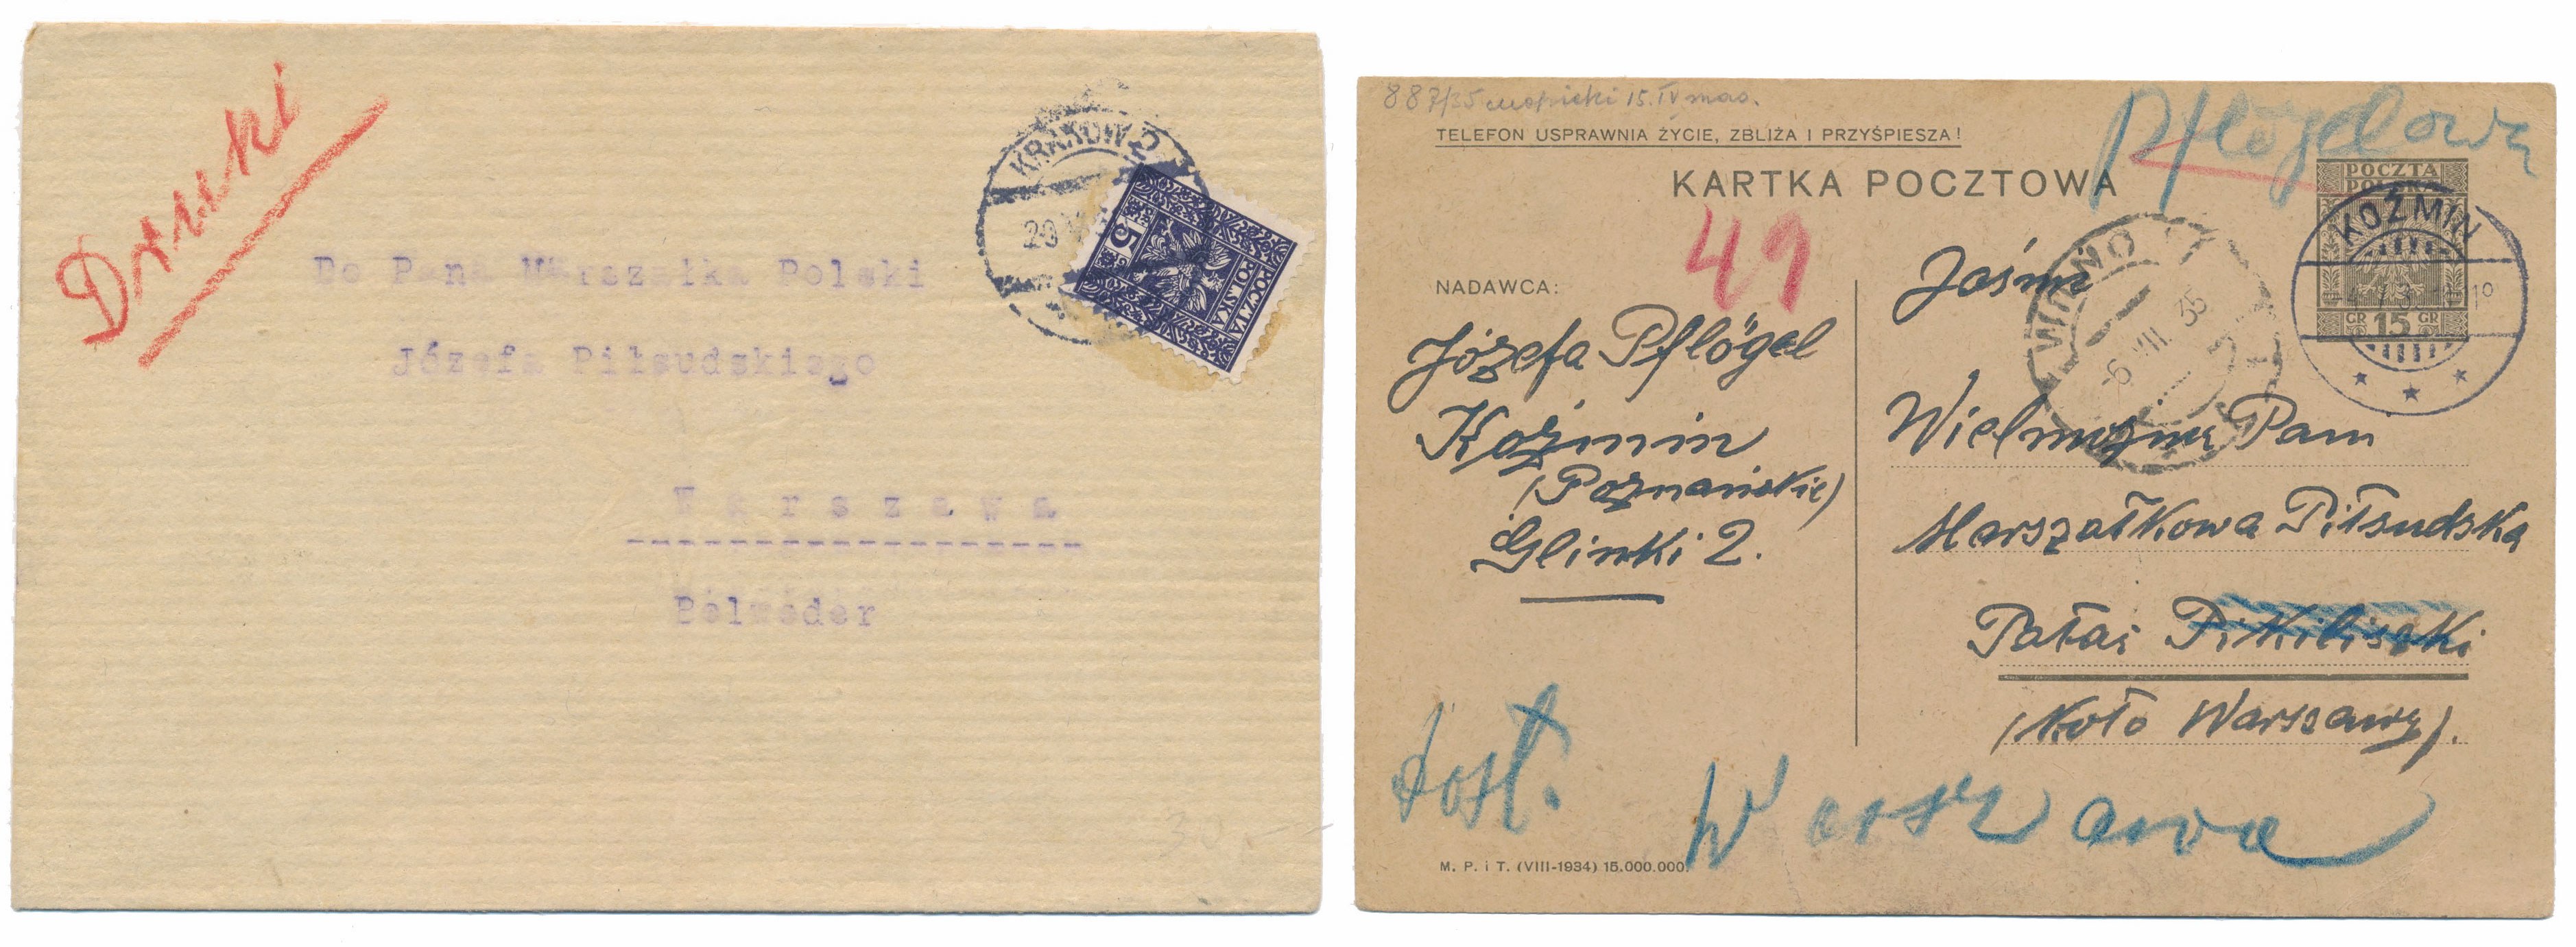 Druki
KRAKÓW 2
20
5
POCZTA
POLSKA
Do Pana Marszałka Polski
Józefa Piłsudskiego
Warszawa
Belweder
887/35 15.IV
TELEFON USPRAWNIA ŻYCIE, ZBLIŻA I PRZYŚPIESZA!
KARTKA POCZTOWA
Pflögelową
49
POCZTA
POLSKA
GR 15 GR
KOŹMIN
WILNO 1
-6.VII.35
NADAWCA:
Józefa Pflögel
Koźmin
(Poznańskie)
Glinki 2.
Jaśnie
Wielmożna Pani
Marszałkowa Piłsudska
Pałac Pikiliszki
(Koło Warszawy).
dost. Warszawa
M. P. i T. (VIII-1934) 15.000.000.